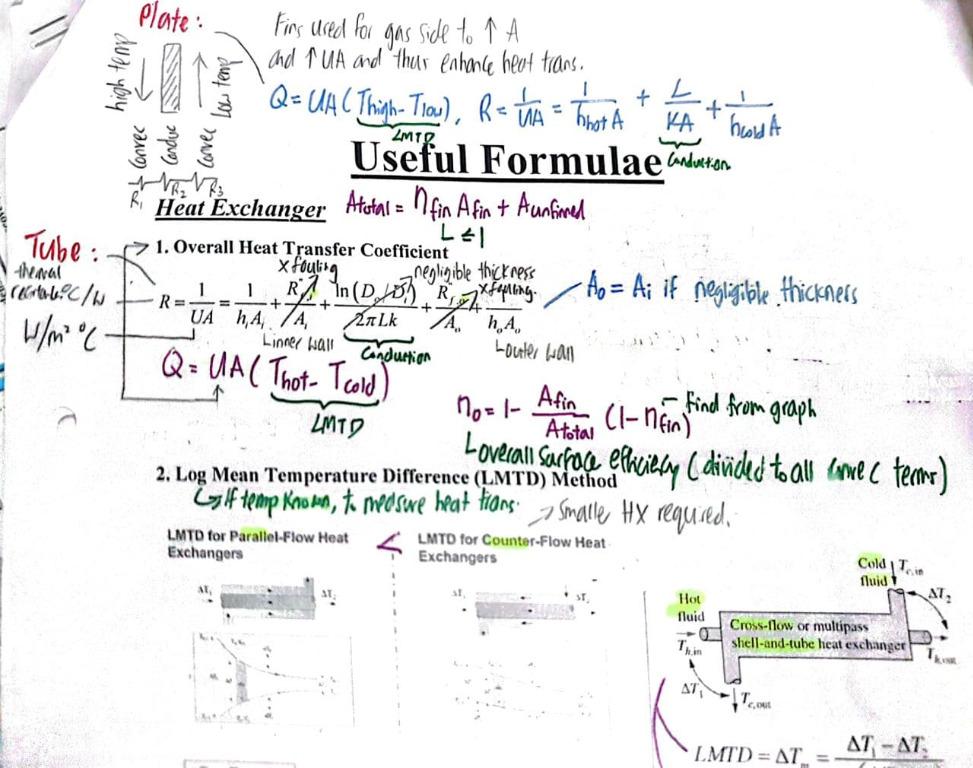 Plate:
Fins used for gas side to ↑ A
and ↑ UA and thus enhance heat trans.
high temp
low temp
Q = UA (Thigh - Tlow), R = 1/UA = 1/hhot A + L/KA + 1/hcold A
LMTD
Conduction
Convec
Conduc
Convec
R1 R2 R3
Useful Formulae
Heat Exchanger
Atotal = ηfin Afin + Aunfinned
L ≤ 1
Tube:
1. Overall Heat Transfer Coefficient
x fouling
negligible thickness
x fouling.
thermal
°C/W
R = 1/UA = 1/hᵢAᵢ + R/Aᵢ + ln(Dₒ/Dᵢ)/2πLk + R/Aₒ + 1/hₒAₒ
Ao = Ai if negligible thickness
W/m² °C
inner wall
Conduction
outer wall
Q = UA (Thot - Tcold)
LMTD
ηo = 1 - Afin/Atotal (1 - ηfin)
find from graph
overall surface efficiency (divided to all convec terms)
2. Log Mean Temperature Difference (LMTD) Method
If temp known, to measure heat trans.
→ Smaller HX required.
LMTD for Parallel-Flow Heat
Exchangers
LMTD for Counter-Flow Heat
Exchangers
ΔT₁
Cold
fluid
Tc,in
ΔT₂
Hot
fluid
Th,in
Cross-flow or multipass
shell-and-tube heat exchanger
Th,out
ΔT₁
Tc,out
LMTD = ΔTm = ΔT₁ - ΔT₂